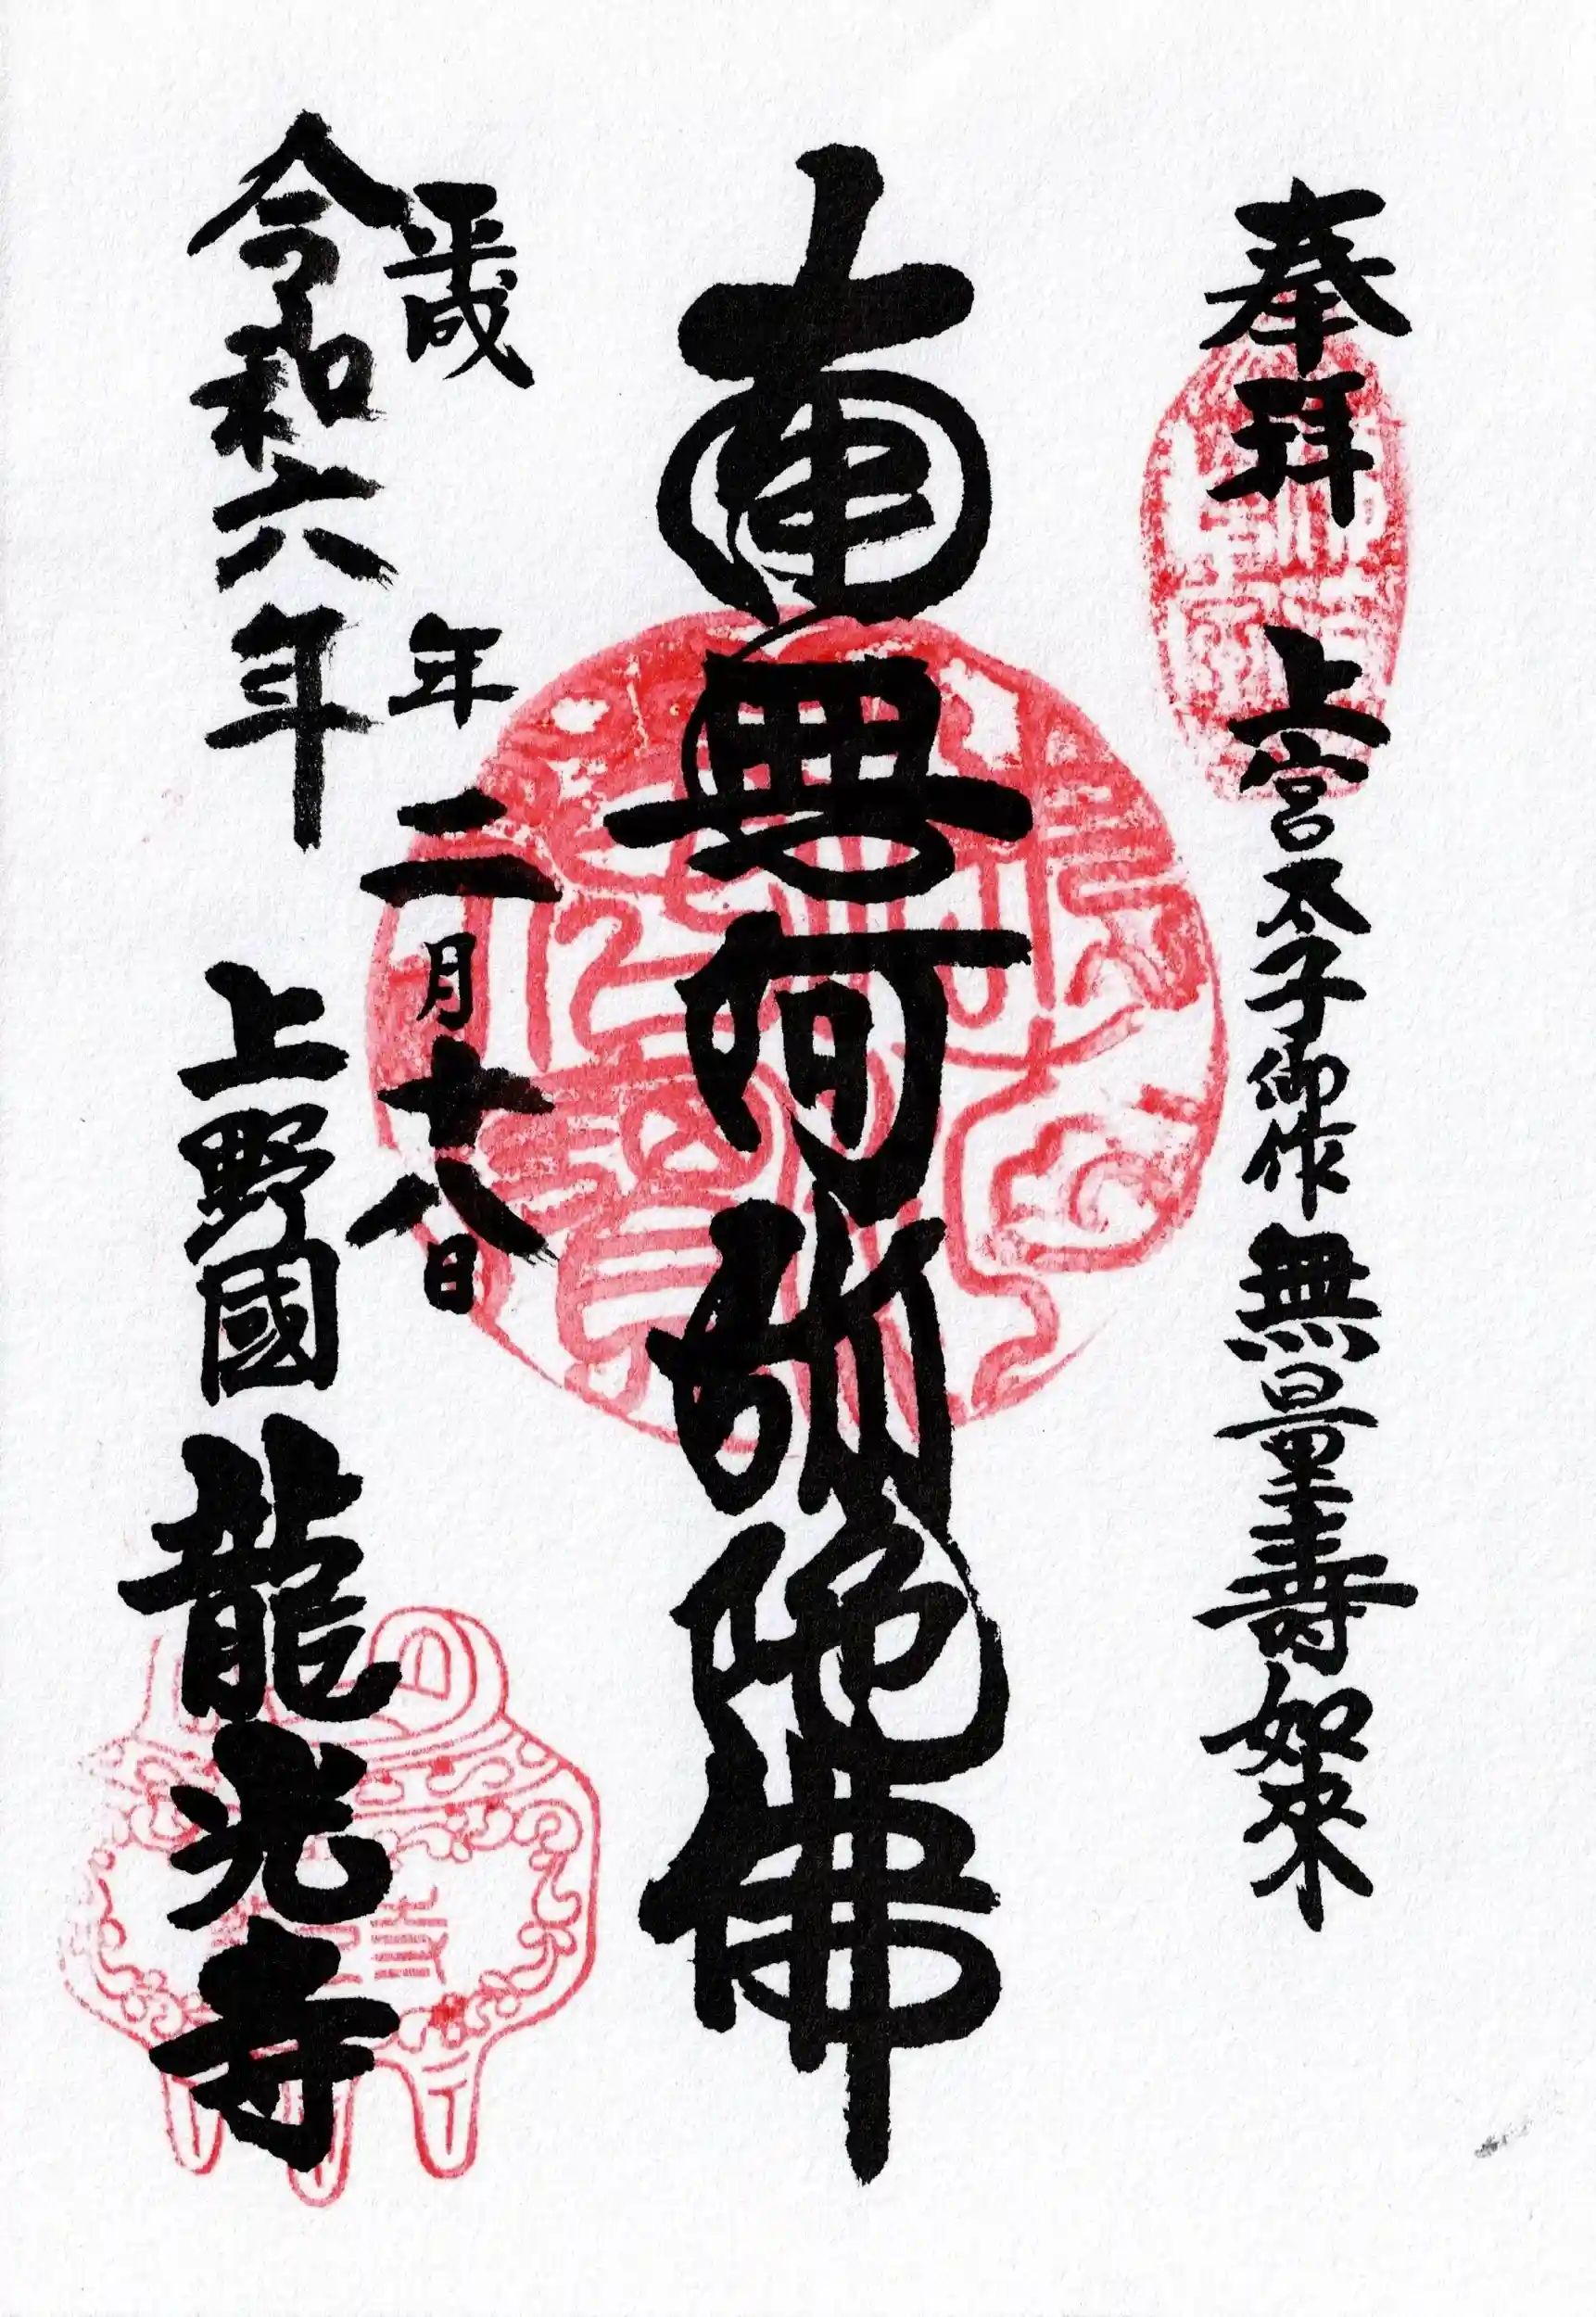 奉拝
上宮太子御作無量壽如來
南無阿弥陀佛
平成 年二月十八日
令和六年
上野國龍光寺